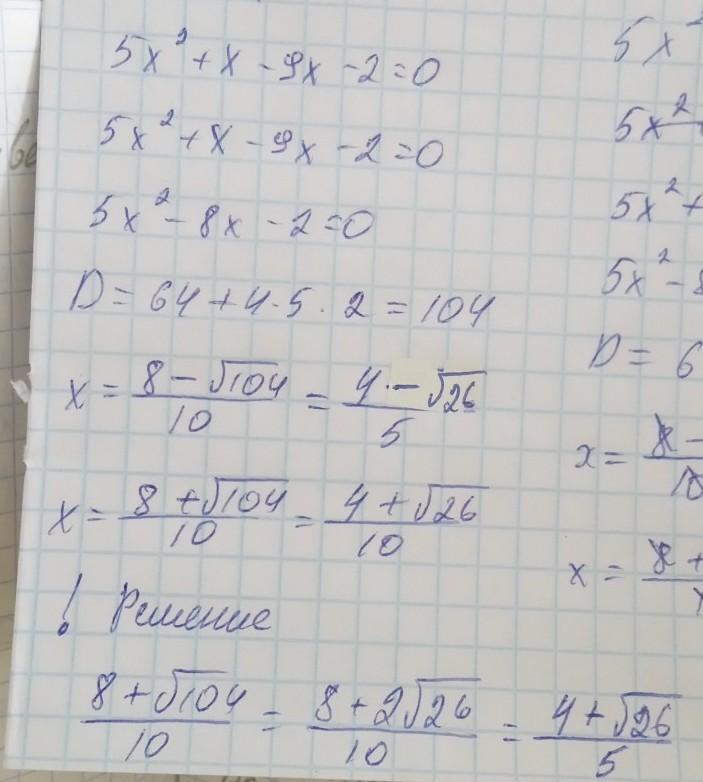 5x² + x - 9x - 2 = 0
5x² + x - 9x - 2 = 0
5x² - 8x - 2 = 0
D = 64 + 4·5·2 = 104
x = (8 - √104)/10 = (4 - √26)/5
x = (8 + √104)/10 = (4 + √26)/10
! Решение
(8 + √104)/10 = (8 + 2√26)/10 = (4 + √26)/5
5x²
5x²
5x² +
5x² - 8
D = 6
x = 8 - / 10
x = 8 +